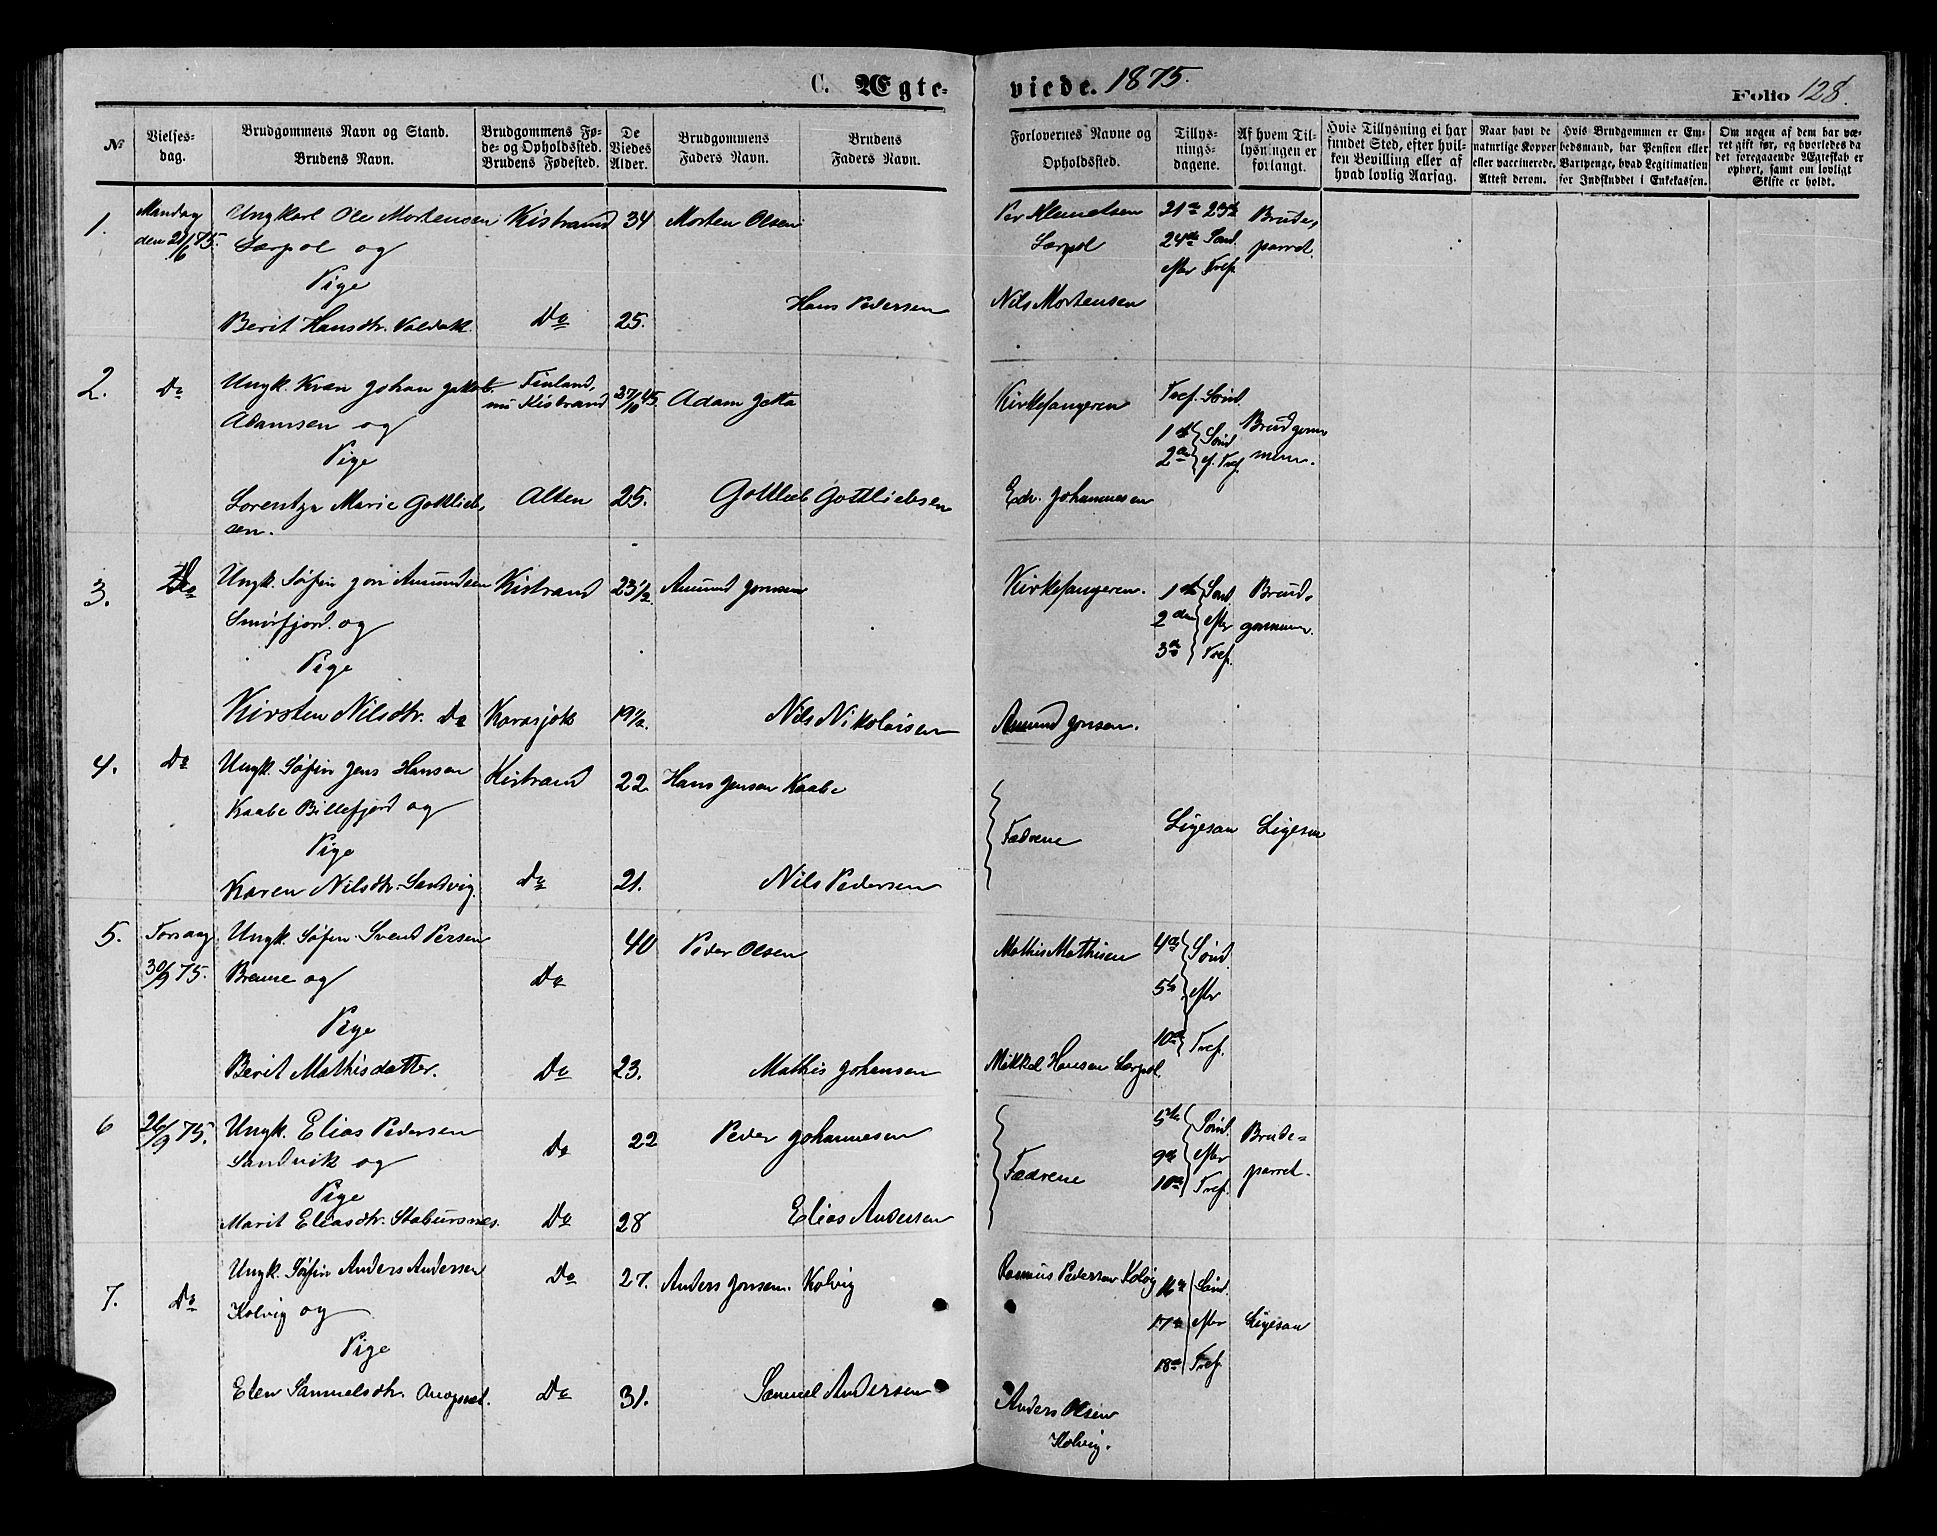 C. Ægteviede. 1875.
Folio 128.
№
Vielsesdag.
Brudgommens Navn og Stand.
Brudens Navn.
Brudgommens Føde- og Opholdsted.
Brudens Fødested.
De Viedes Alder.
Brudgommens Faders Navn.
Brudens Faders Navn.
Forlovernes Navne og Opholdsted.
Tillysningsdagene.
Af hvem Tillysningen er forlangt.
Hvis Tillysning ei har fundet Sted, efter hvilken Bevilling eller af hvad lovlig Aarsag.
Naar havt de naturlige Kopper eller vaccinerede. Attest derom.
Hvis Brudgommen er Embedsmand, har Pension eller Vartpenge, hvad Legitimation for Indskuddet i Enkekassen.
Om nogen af dem har været gift før, og hvorledes da det foregaaende Ægteskab er ophørt, samt om lovligt Skifte er holdt.
1. Mandag Ungkarl Ole Mortensen Kistrand 34 Morten Olsen Per Klemetsen 21de 23de Brude,
den 21/6 75. Lærpol og Lærpol 24de Sønd. parret.
Pige efter Tref.
Hans Pedersen Nils Mortensen
Berit Hansdtr. Valdak Do 25.
2. Do Ungk. Kvæn Johan Jakob Finland, 27/10 45. Adam Jatta Kirkesangeren Tref. Sønd.
nu Kistrand
Adamsen og 1ste Sønd. Brudgom
Pige 2den ef. Tref. men.
Lorentza Marie Gottlieb, Alten 25. Gottlieb Gottliebsen Edv. Johannesen
sen.
3. Do Ungk. Søfin Jon Amundsen Kistrand 23 1/2. Amund Jonsen Kirkesangeren. 1ste Sønd Brud,
Smørfjord. og 2den efter gommen.
Pige 3de Tref.
Kirsten Nilsdtr. Do Karasjok 19 1/2. Nils Nikolaisen Amund Jonsen.
4. Do Ungk. Søfin Jens Hansen Kistrand 22. Hans Jensen Kaabe
Kaabe Billefjord og Fædrene Ligesaa Ligesaa
Pige
Karen Nilsdtr. Sandvig. Do 21. Nils Pedersen
5. Torsdag Ungk. Søfin Svend Persen 40 Peder Olsen Mathis Mathisen 4de Sønd.
30/9 75. Brenne og Do 5te efter
Pige 10de Tref.
Berit Mathisdatter. Do 23. Mathis Johansen Mikkel Hansen Lærpol.
6 26/9 75. Ungk. Elias Pedersen Do 22 Peder Johannesen 5te Sønd. Brude-
Sandvik og Fædrene 9de efter parret.
Pige 10de Tref.
Marit Eliasdtr. Stabursnes. Do 28 Elias Andersen
7. Do Ungk. Søfin Anders Andersen Do 27. Anders Jonsen. Kolvig Rasmus Pedersen Kolvig 16de Sønd.
Kolvig og 17de efter Ligesaa
Pige 18de Tref.
Elen Samuelsdtr. Do 31. Samuel Andersen Anders Olsen
Kolvig.